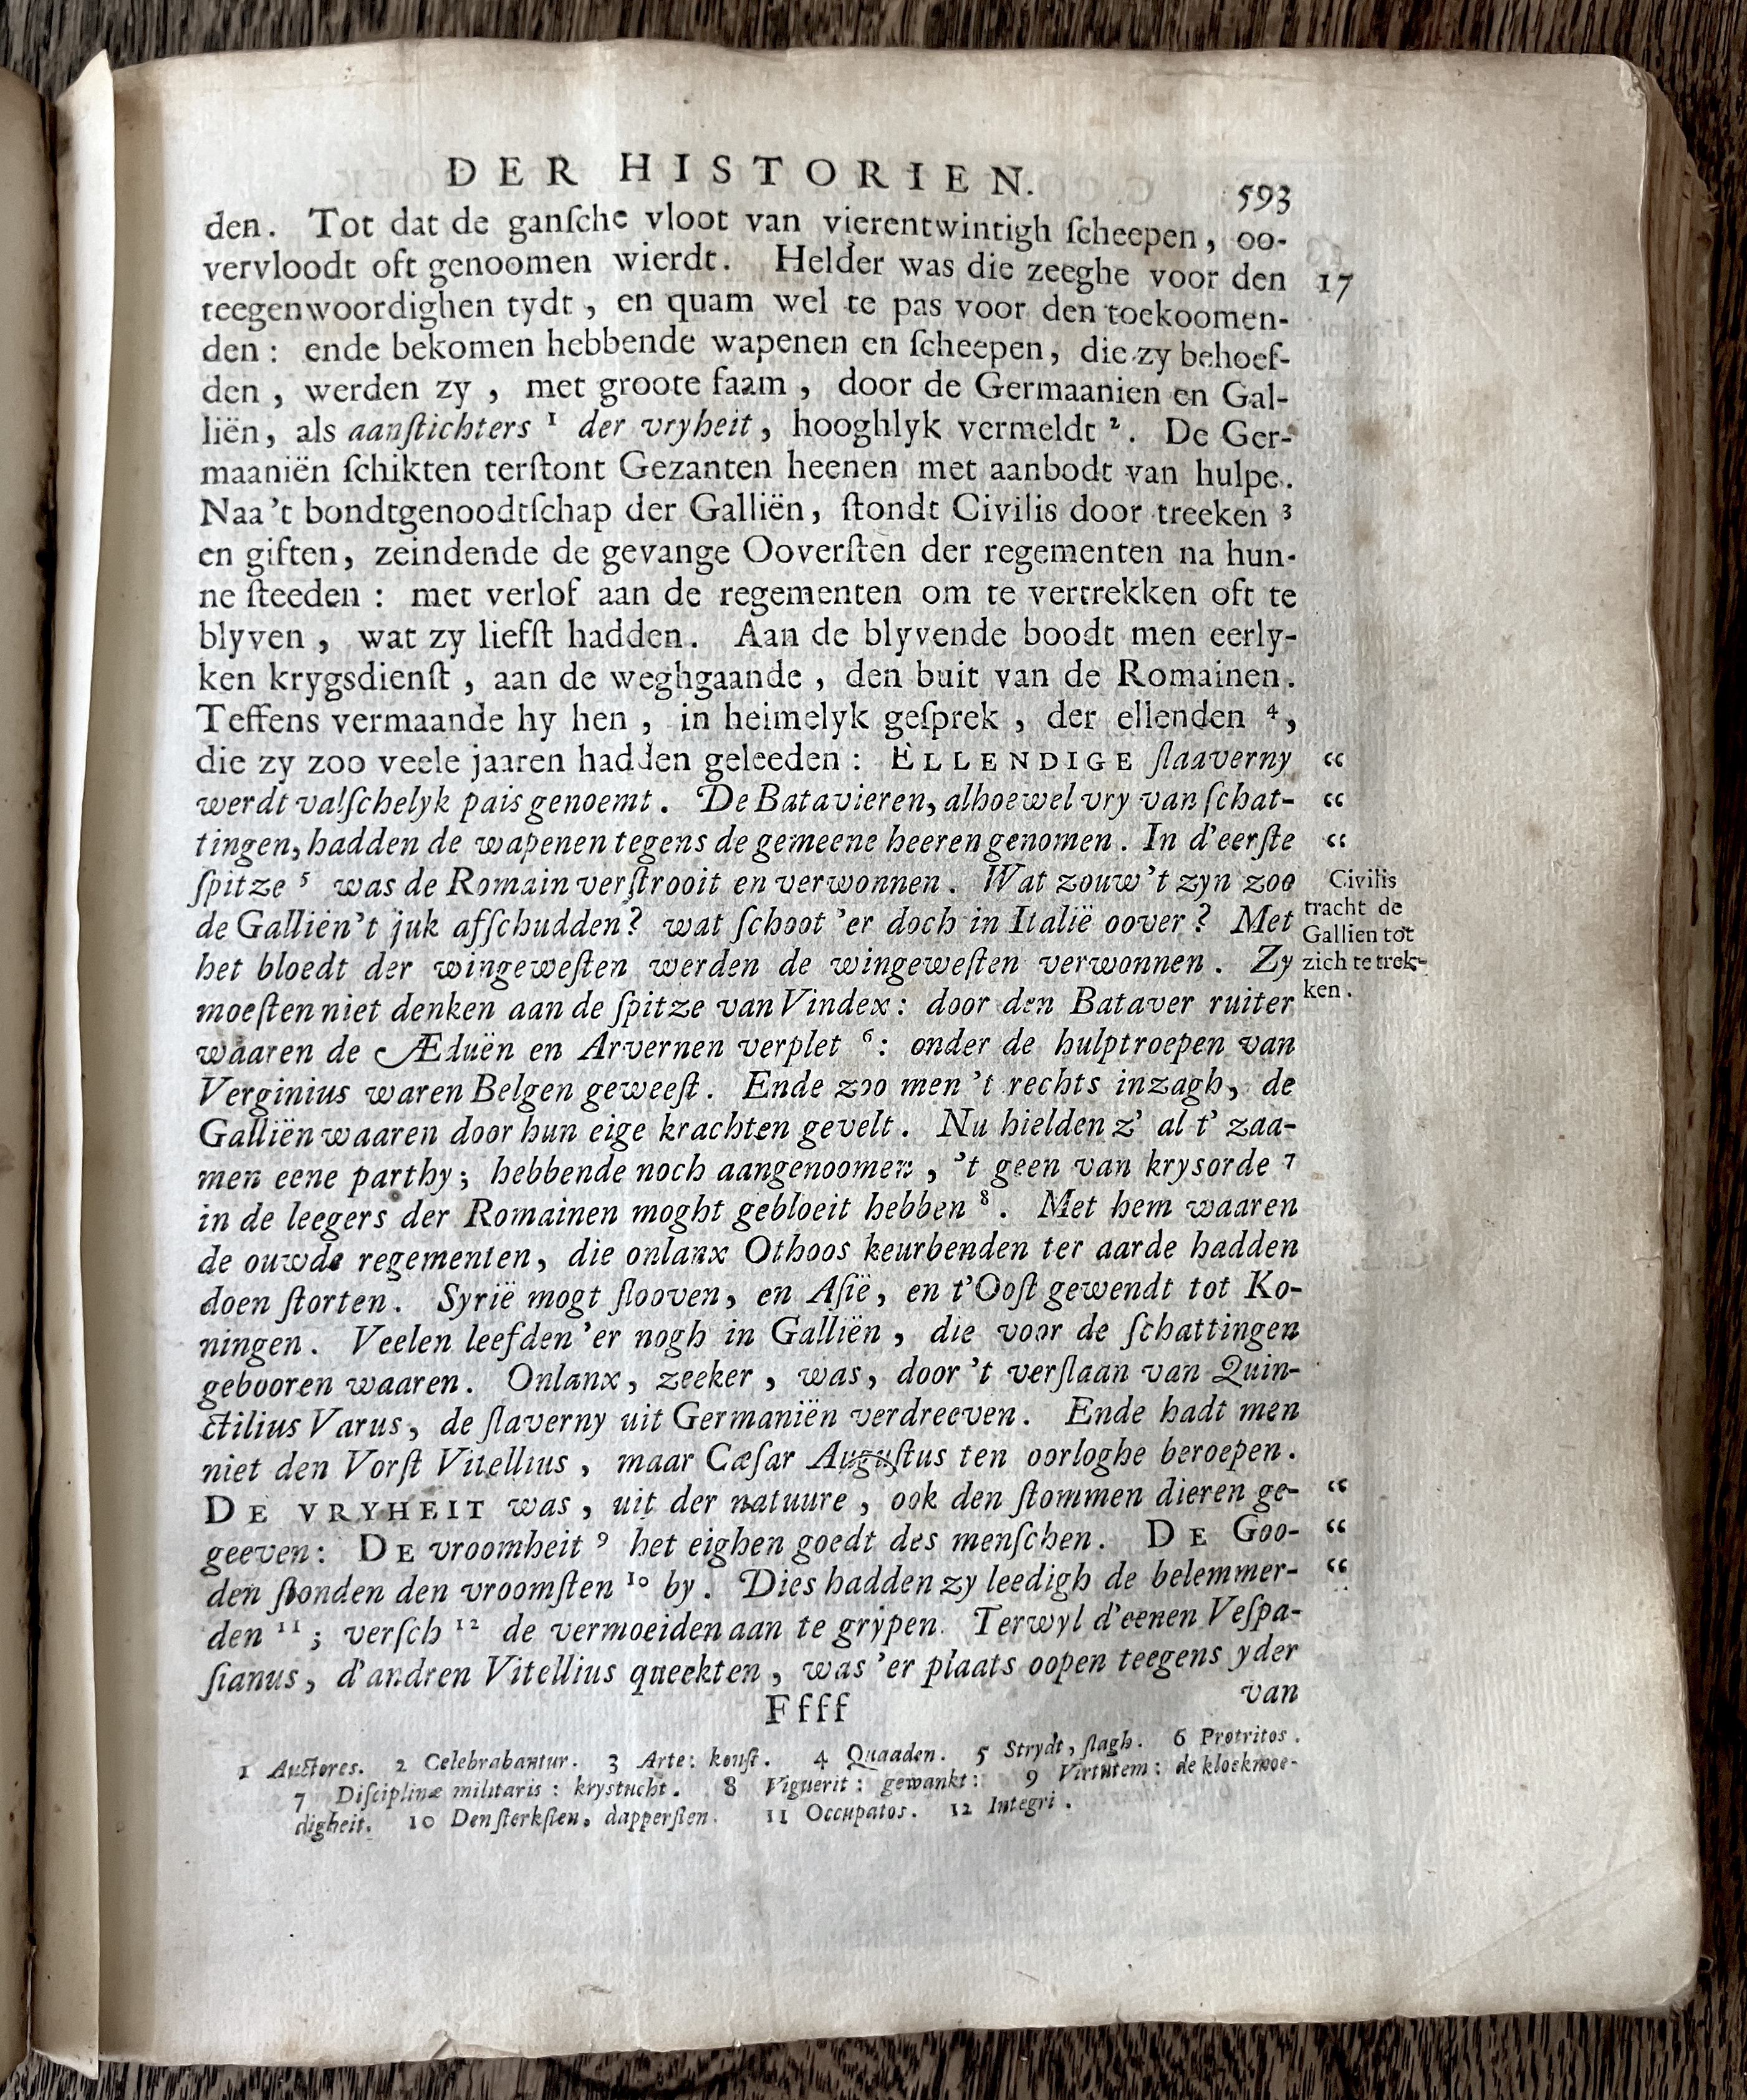 DER HISTORIEN. 593
den. Tot dat de ganſche vloot van vierentwintigh ſcheepen, oo-
vervloodt oft genoomen wierdt. Helder was die zeeghe voor den 17
teegenwoordighen tydt, en quam wel te pas voor den toekoomen-
den: ende bekomen hebbende wapenen en ſcheepen, die zy behoef-
den, werden zy, met groote faam, door de Germaanien en Gal-
liën, als aanſtichters 1 der vryheit, hooghlyk vermeldt 2. De Ger-
maaniën ſchikten terſtont Gezanten heenen met aanbodt van hulpe.
Naa't bondtgenoodtſchap der Galliën, ſtondt Civilis door treeken 3
en giften, zeindende de gevange Ooverſten der regementen na hun-
ne ſteeden: met verlof aan de regementen om te vertrekken oft te
blyven, wat zy liefſt hadden. Aan de blyvende boodt men eerly-
ken krygsdienſt, aan de weghgaande, den buit van de Romainen.
Teffens vermaande hy hen, in heimelyk geſprek, der ellenden 4,
die zy zoo veele jaaren hadden geleeden: ELLENDIGE ſlaaverny “
werdt valſchelyk pais genoemt. De Batavieren, alhoewel vry van ſchat- “
tingen, hadden de wapenen tegens de gemeene heeren genomen. In d'eerſte “
ſpitze 5 was de Romain verſtrooit en verwonnen. Wat zouw't zyn zoo
de Galliën't juk afſchudden? wat ſchoot'er doch in Italië oover? Met
het bloedt der wingeweſten werden de wingeweſten verwonnen. Zy
moeſten niet denken aan de ſpitze van Vindex: door den Bataver ruiter
Civilis
tracht de
Gallien tot
zich te trek-
ken.
waaren de Æduën en Arvernen verplet 6: onder de hulptroepen van
Verginius waren Belgen geweeſt. Ende zoo men't rechts inzagh, de
Galliën waaren door hun eige krachten gevelt. Nu hielden z' al t' zaa-
men eene parthy; hebbende noch aangenoomen, 't geen van krysorde 7
in de leegers der Romainen moght gebloeit hebben 8. Met hem waaren
de ouwde regementen, die onlanx Othoos keurbenden ter aarde hadden
doen ſtorten. Syrië mogt ſlooven, en Aſië, en t'Ooſt gewendt tot Ko-
ningen. Veelen leefden'er nogh in Galliën, die voor de ſchattingen
gebooren waaren. Onlanx, zeeker, was, door't verſlaan van Quin-
ctilius Varus, de ſlaverny uit Germaniën verdreeven. Ende hadt men
niet den Vorſt Vitellius, maar Cæſar Auguſtus ten oorloghe beroepen.
DE VRYHEIT was, uit der natuure, ook den ſtommen dieren ge- “
geeven: DE vroomheit 9 het eighen goedt des menſchen. DE Goo- “
den ſtonden den vroomſten 10 by. Dies hadden zy leedigh de belemmer- “
den 11; verſch 12 de vermoeiden aan te grypen. Terwyl d'eenen Veſpa-
ſianus, d'andren Vitellius queekten, was'er plaats oopen teegens yder
Ffff van
1 Auctores. 2 Celebrabantur. 3 Arte: konſt. 4 Quaaden. 5 Strydt, ſlagh. 6 Protritos.
7 Diſciplinæ militaris: krystucht. 8 Viguerit: gewankt: 9 Virtutem: de kloekmoe-
digheit. 10 Den ſterkſten, dapperſten. 11 Occupatos. 12 Integri.